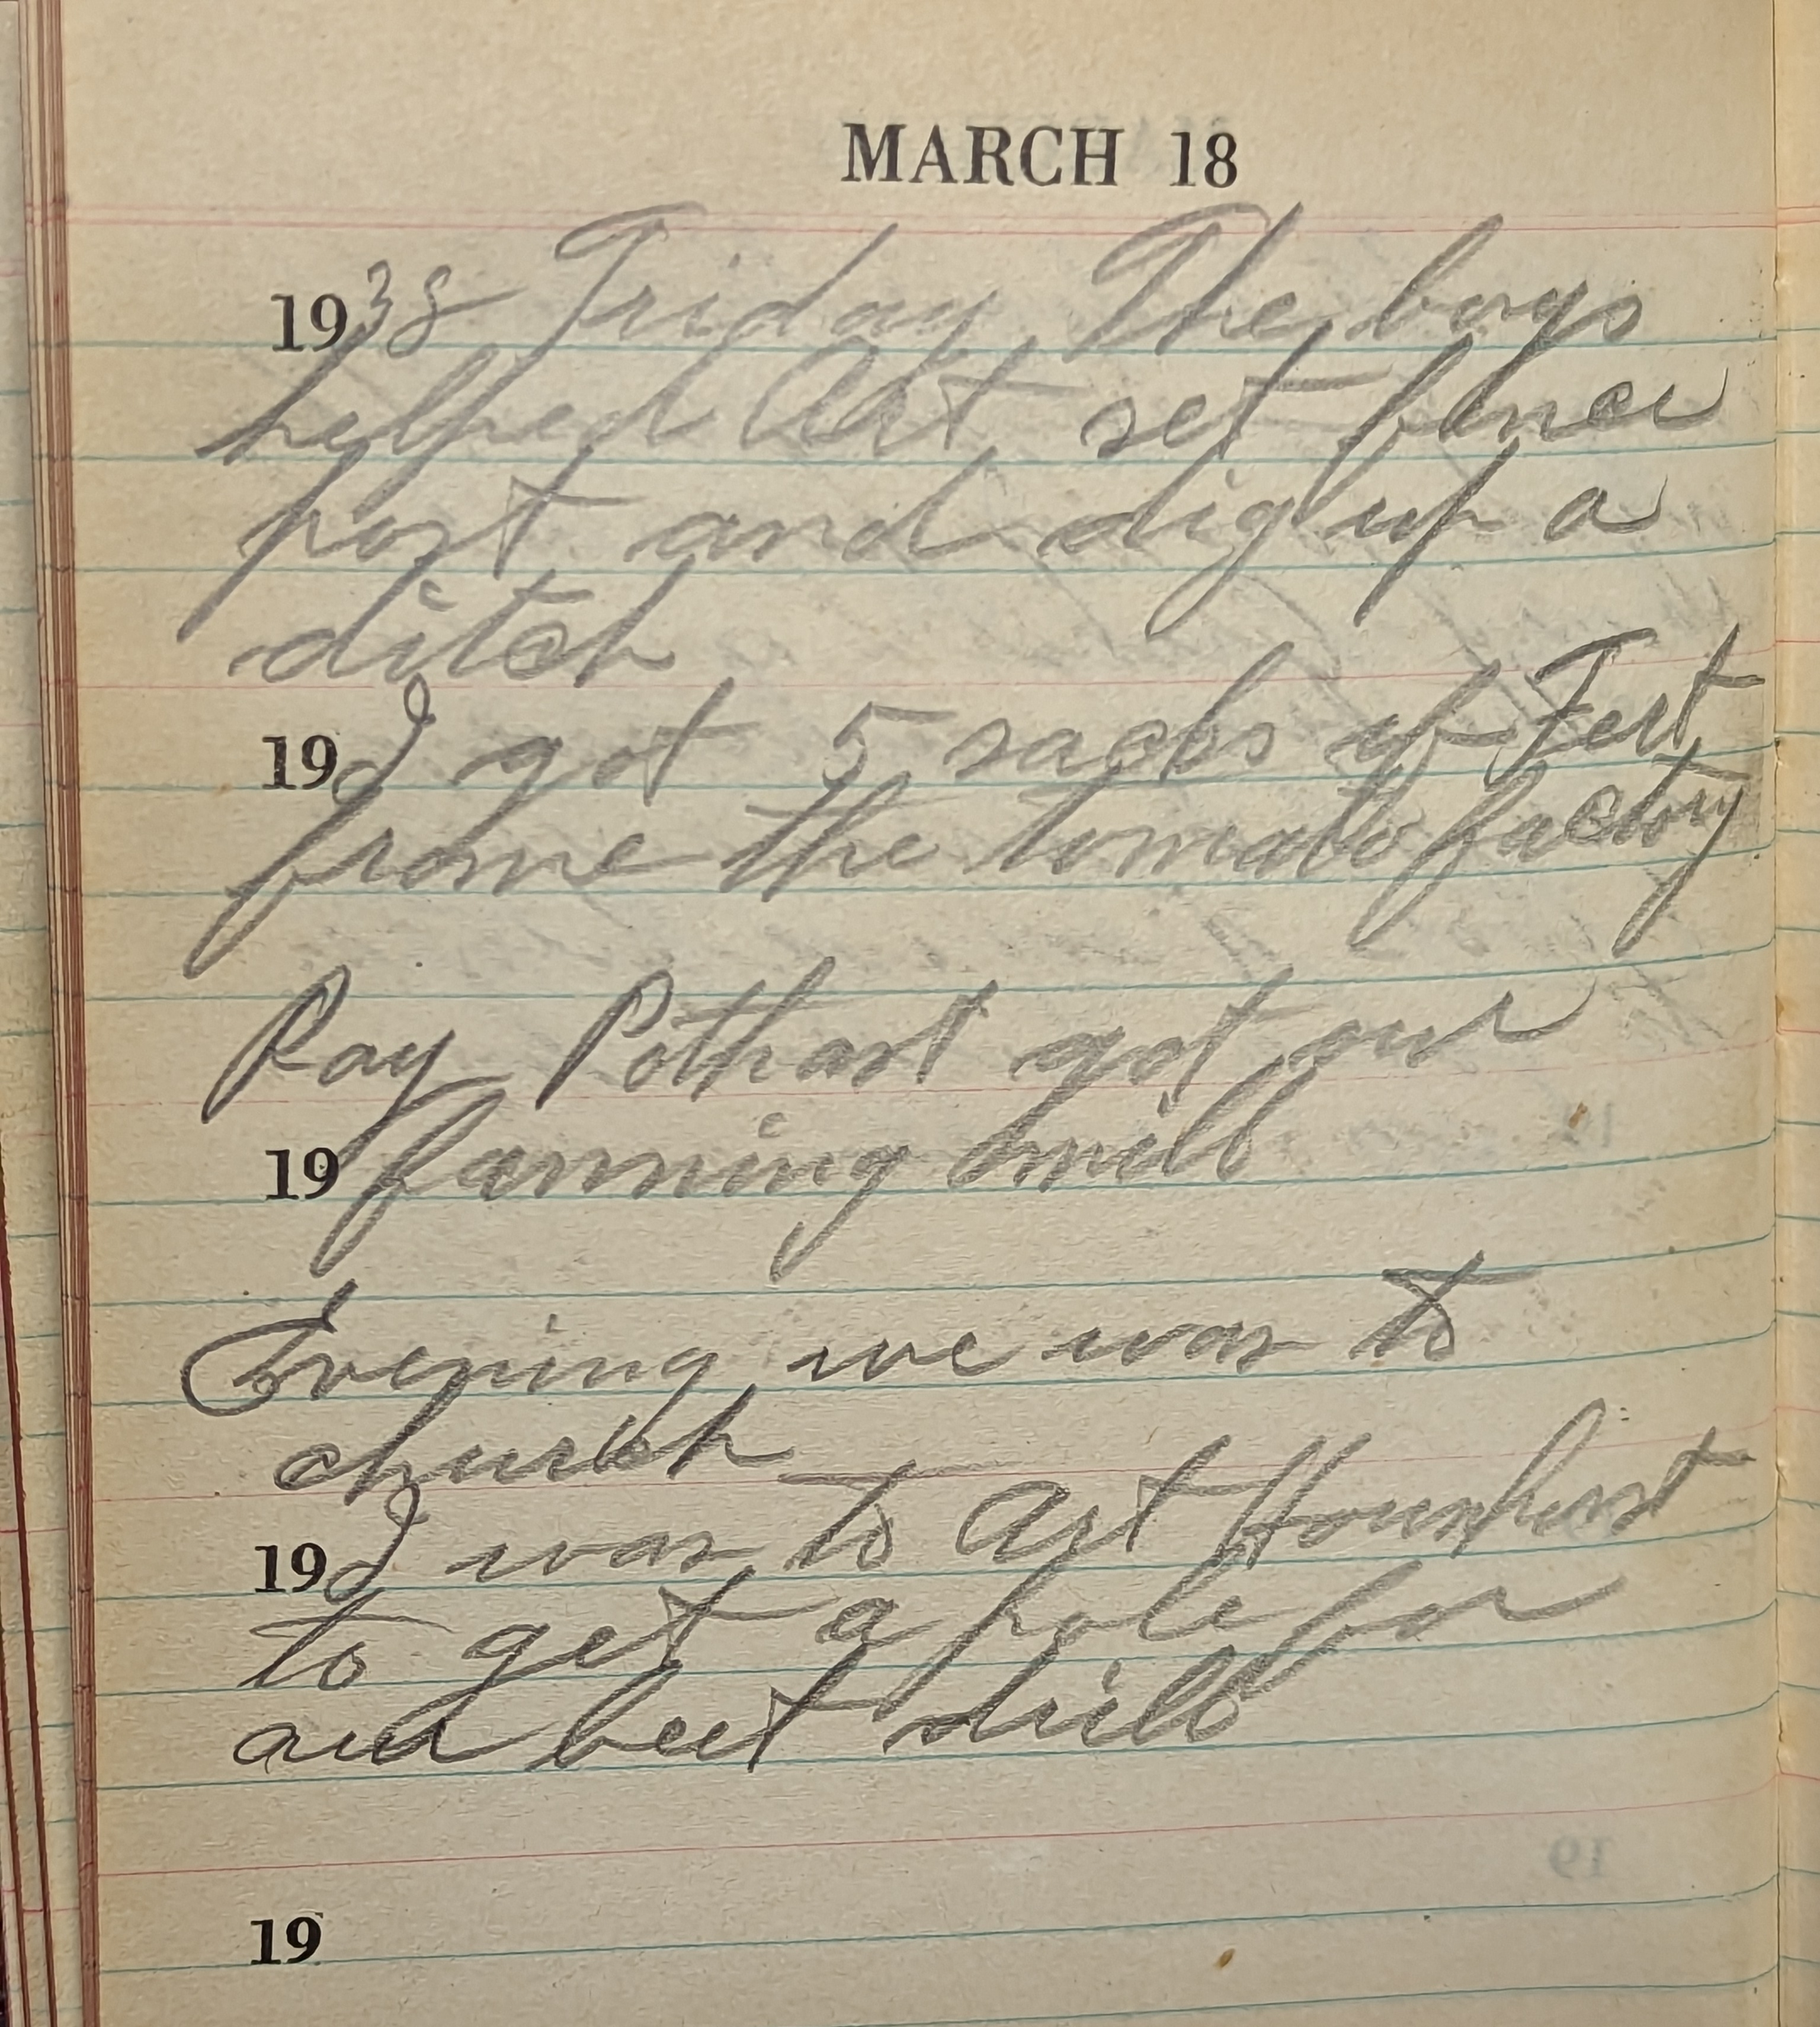 MARCH 18
1938 Friday The boys
helped Art set fence
post and dig up a
ditch
19 I got 5 sacks of Fert
frome the tomato factory
Ray Pothast got our
19 fanning mill
Evening we was to
church
19 I was to Art
to get a pole for
our beet drill
19